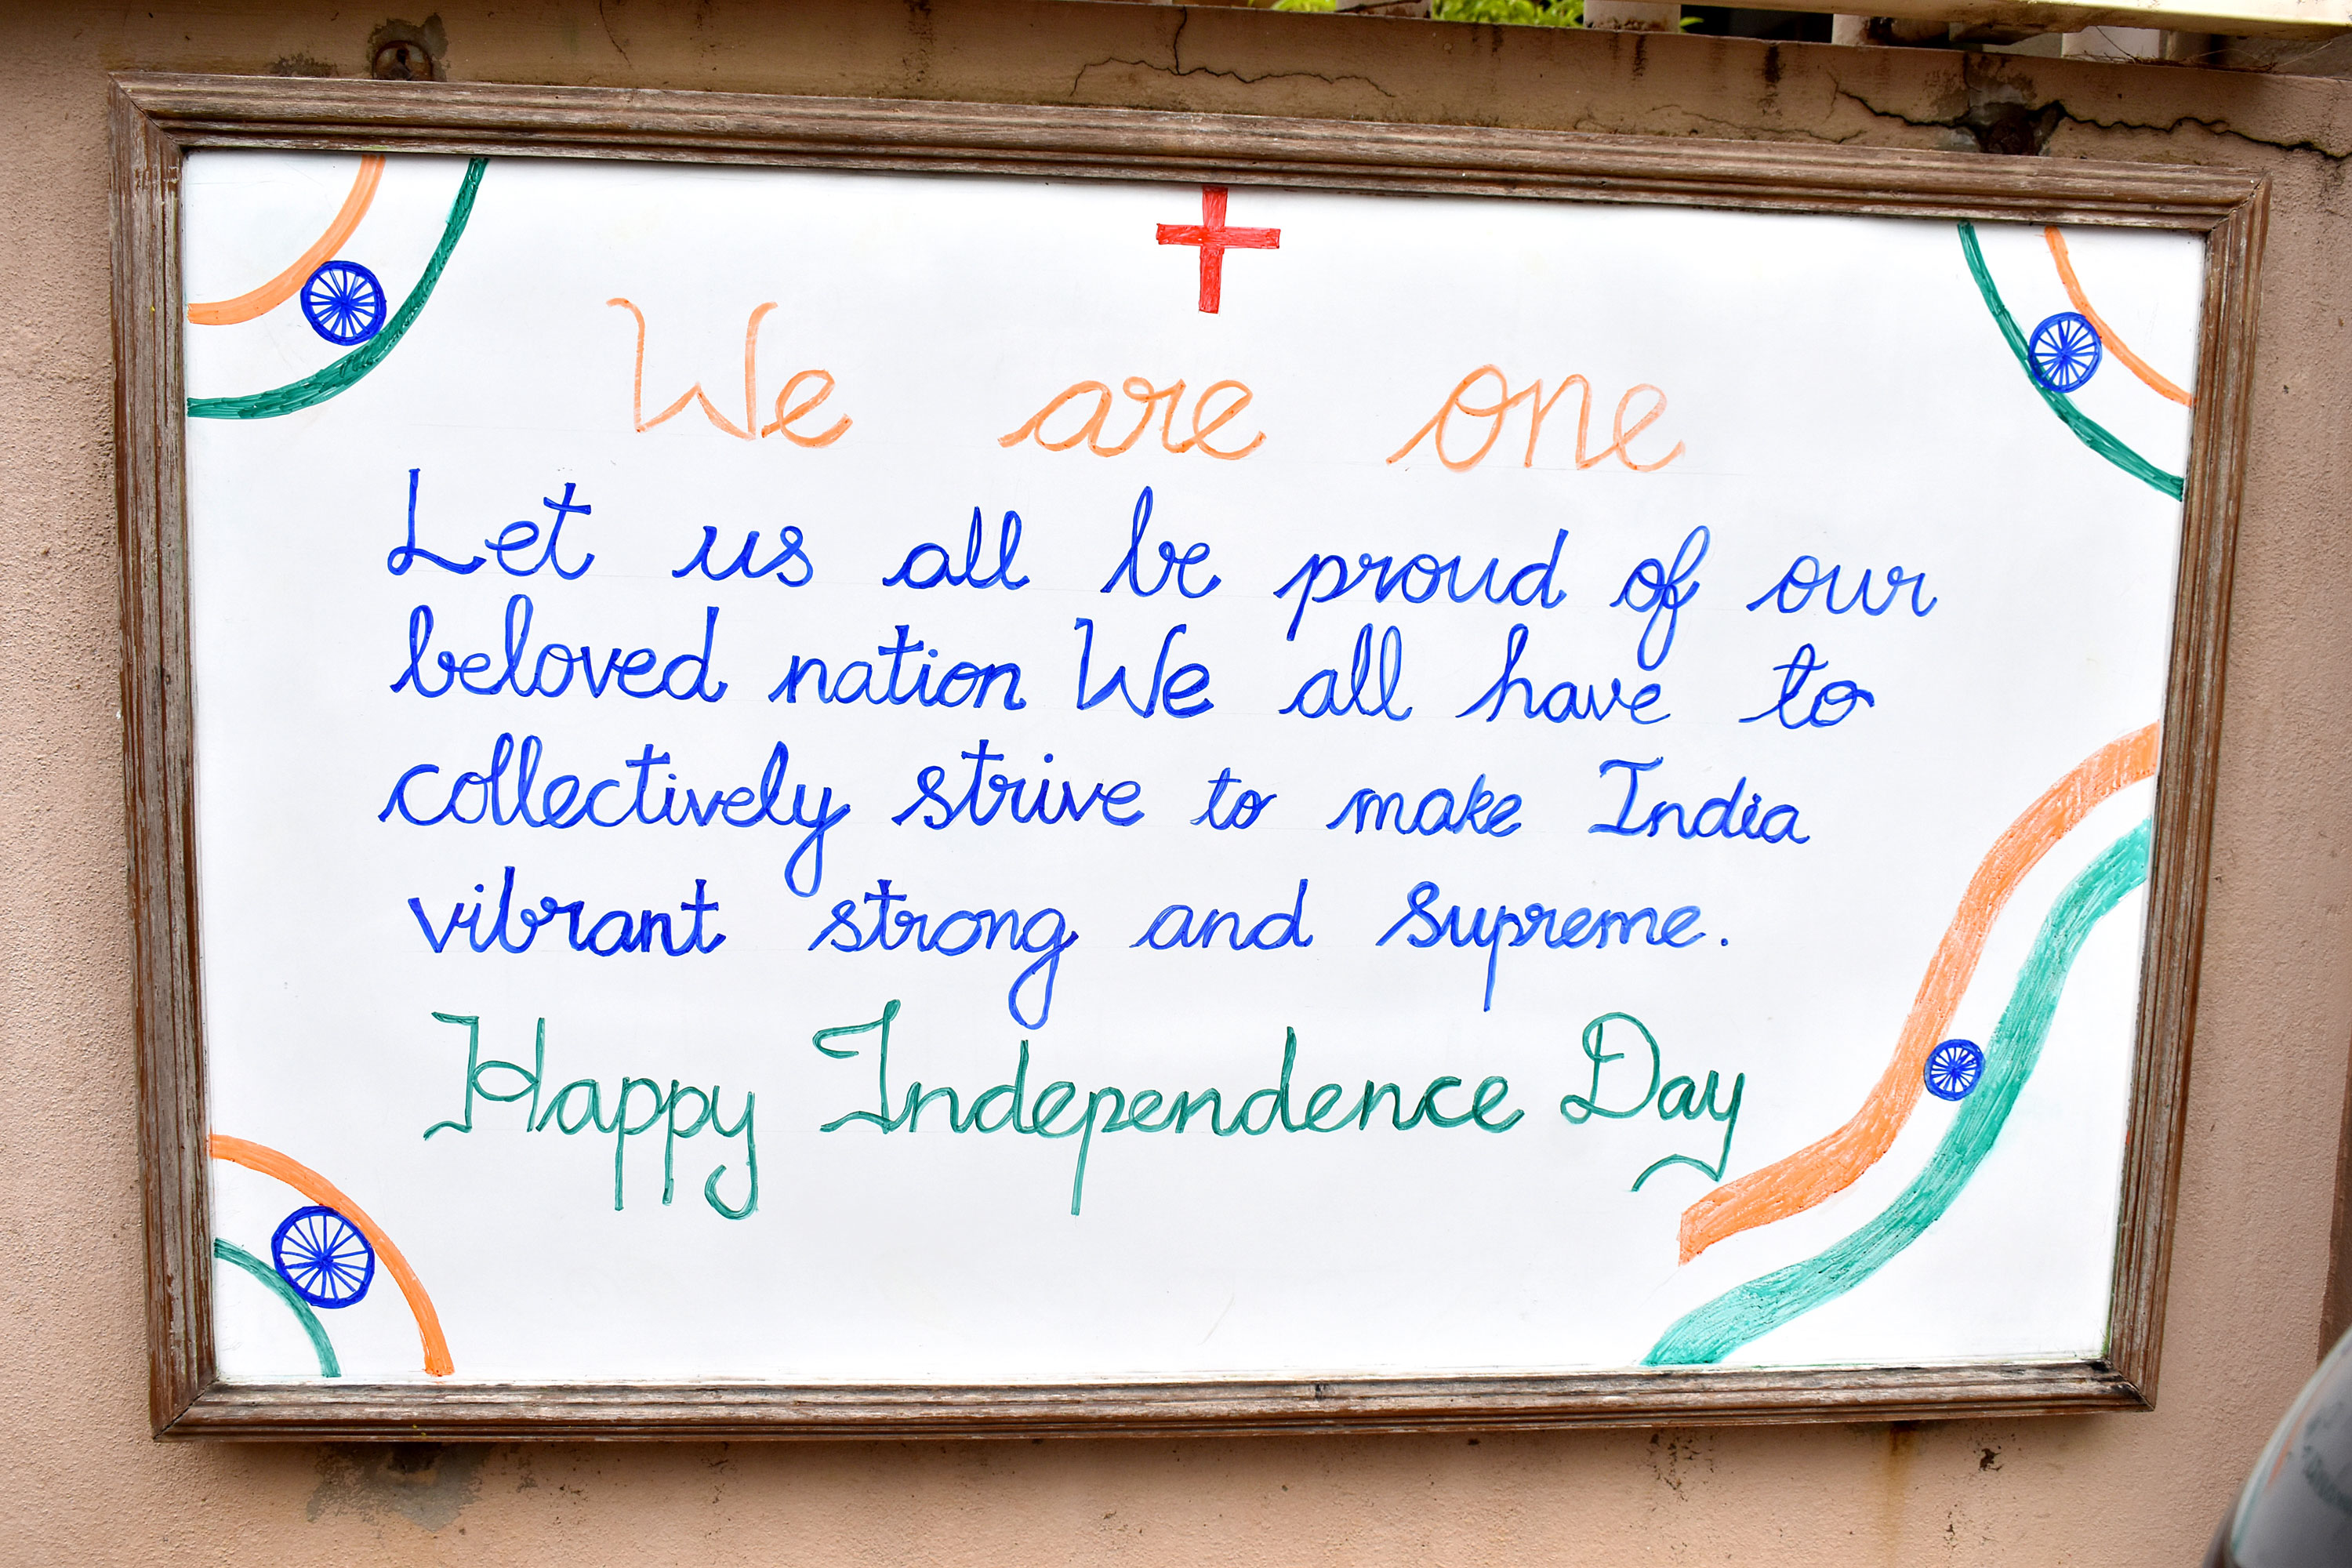 We are one
Let us all be proud of our
beloved nation We all have to
collectively strive to make India
vibrant strong and supreme.
Happy Independence Day